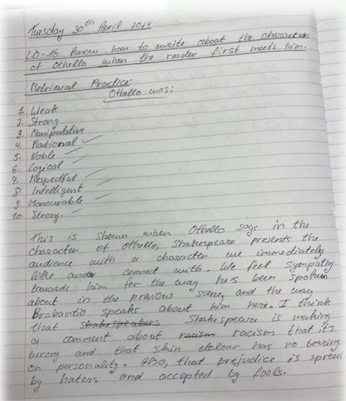 Tuesday 30th April 2024
LO: To know how to write about the character
of Othello when the reader first meets him.
Retrieval Practice:
Othello was:
1. Weak
2. Strong
3. Manipulative
4. Rational
5. Noble
6. Logical
7. Respectful
8. Intelligent
9. Honourable
10. Strong.
This is shown when Othello says in the
character of Othello, Shakespeare presents the
audience with a character we immediately
like and connect with. We feel sympathy
towards him for the way he's been spoken
about in the previous scene, and the way
Brabantio speaks about him here. I think
that Shakespeare is making
a comment about racism that it's
wrong and that skin colour has no bearing
on personality. Also, that prejudice is spread
by haters and accepted by fools.